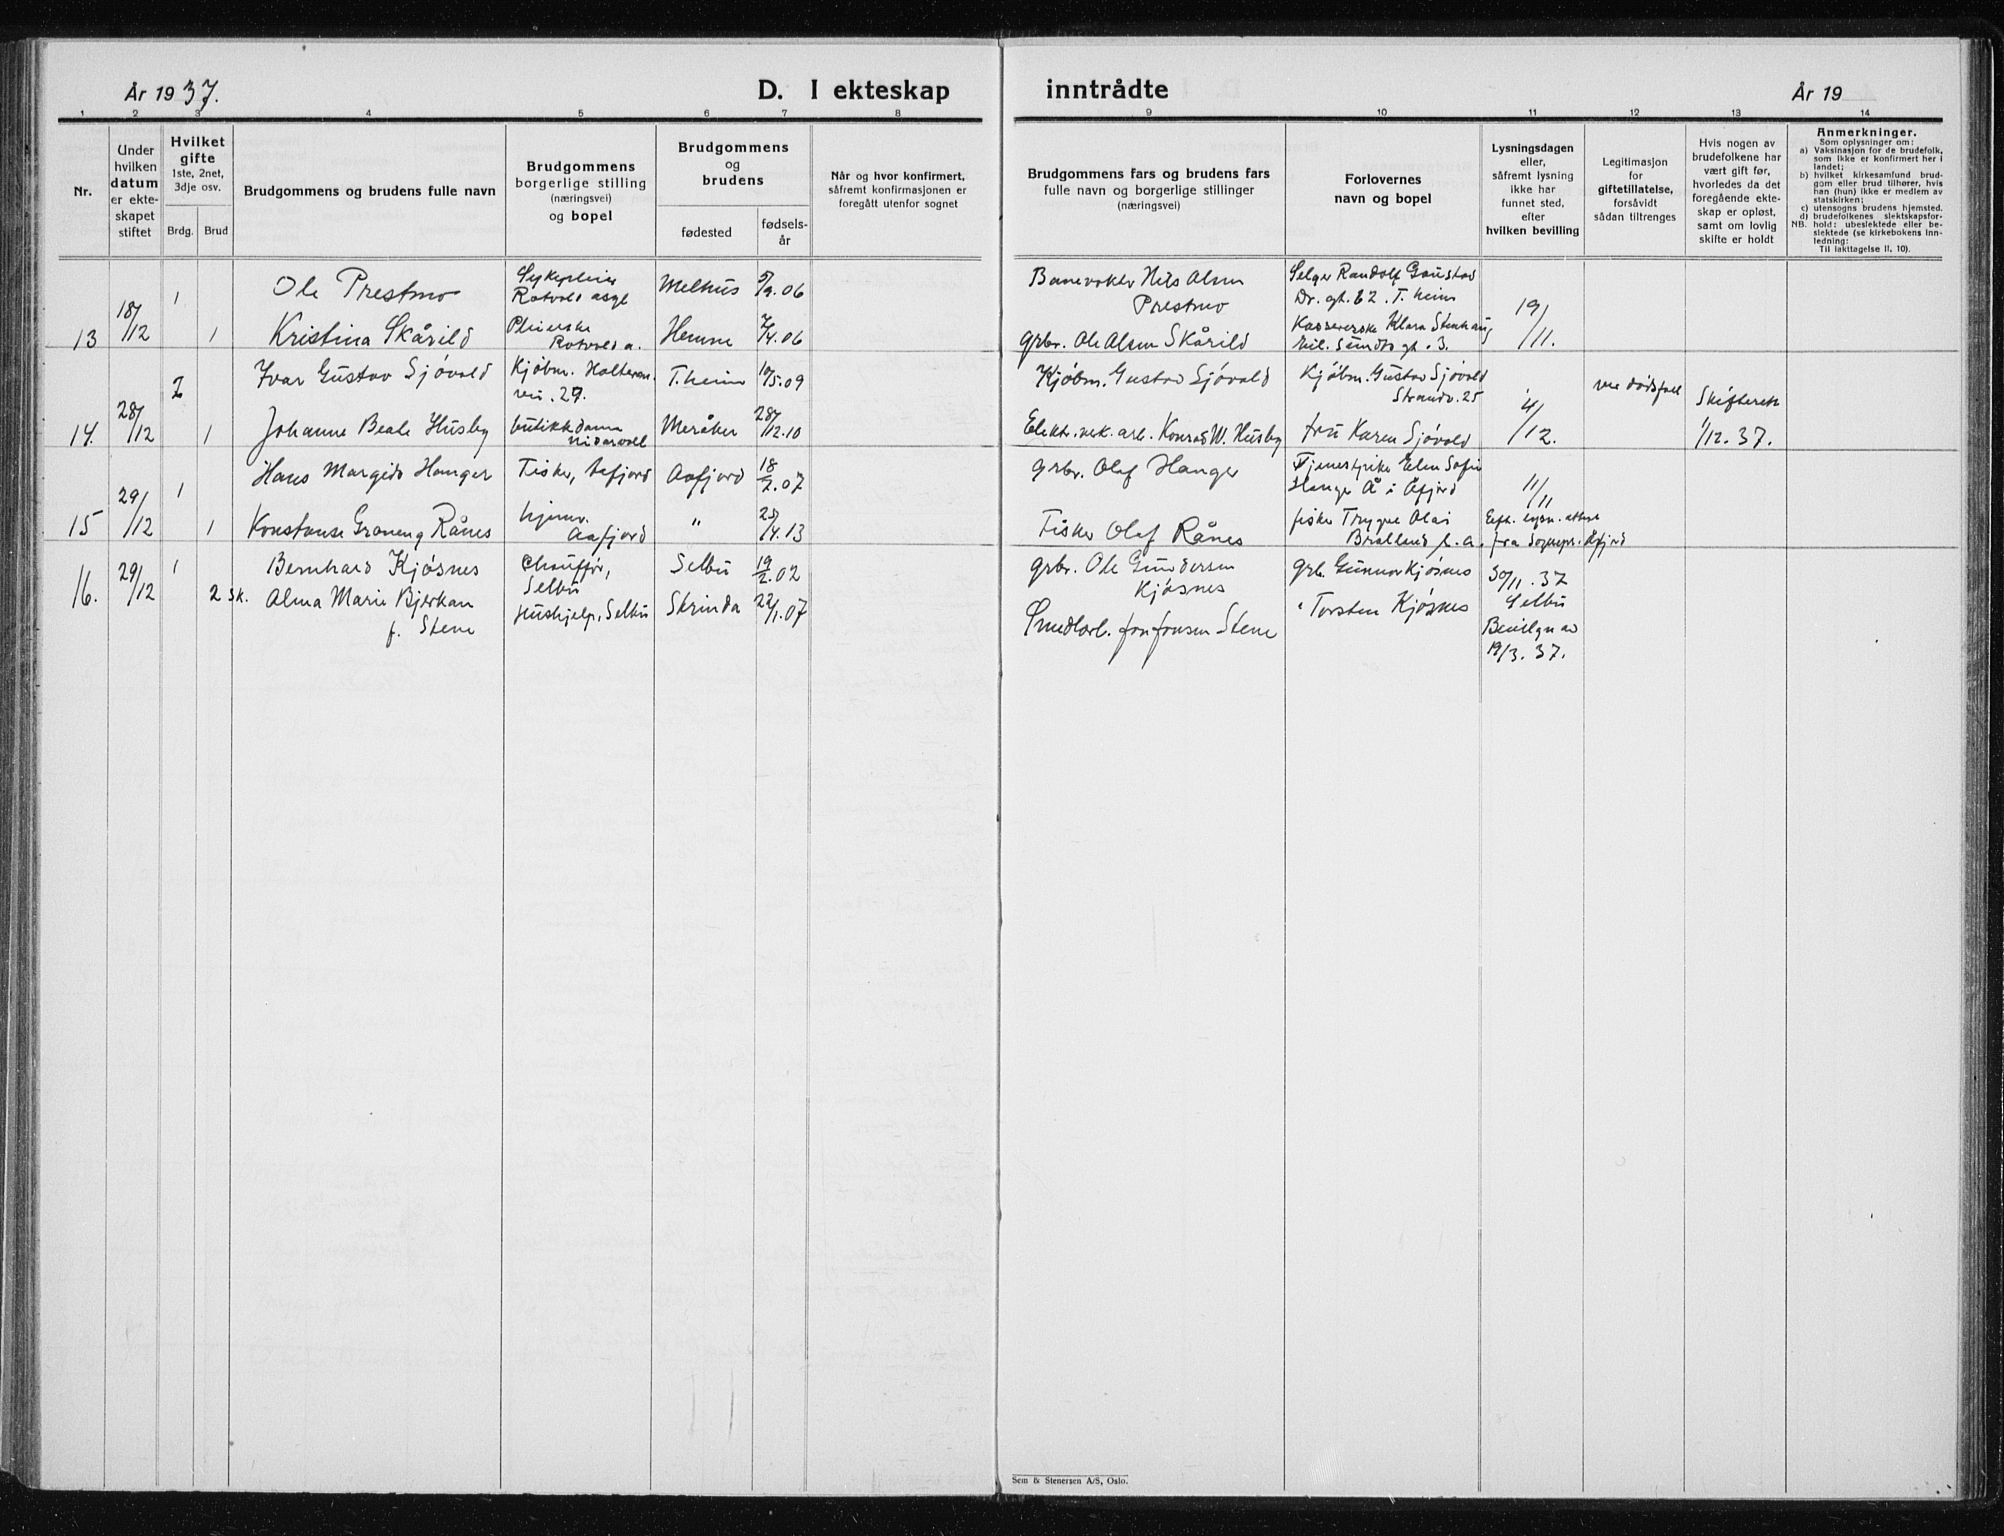 År 1937.
D. I ekteskap inntrådte
År 19
1 2 3 4 5 6 7 8 9 10 11 12 13 14
Nr.
Under
hvilken
datum
er ekte-
skapet
stiftet
Hvilket
gifte
1ste, 2net,
3dje osv.
Brdg. Brud
Brudgommens og brudens fulle navn
Brudgommens
borgerlige stilling
(næringsvei)
og bopel
Brudgommens
og
brudens
fødested
fødsels-
år
Når og hvor konfirmert,
såfremt konfirmasjonen er
foregått utenfor sognet
Brudgommens fars og brudens fars
fulle navn og borgerlige stillinger
(næringsvei)
Forlovernes
navn og bopel
Lysningsdagen
eller,
såfremt lysning
ikke har
funnet sted,
efter
hvilken bevilling
Legitimasjon
for
giftetillatelse,
forsåvidt
sådan tiltrenges
Hvis nogen av
brudefolkene har
vært gift før,
hvorledes da det
foregående ekte-
skap er opløst,
samt om lovlig
skifte er holdt
Anmerkninger.
Som oplysninger om:
a) Vaksinasjon for de brudefolk,
som ikke er konfirmert her i
landet;
b) hvilket kirkesamfund brud-
gom eller brud tilhører, hvis
han (hun) ikke er medlem av
statskirken;
c) utensogns brudens hjemsted.
d) brudefolkenes slektskapsfor-
NB. hold: ubeslektede eller be-
slektede (se kirkebokens Inn-
ledning:
Til iakttagelse II, 10).
1 Ole Prestmo Sykepleier Melhus 5/9.06 Banevokter Nils Olsen Selger Randolf Gaustad
Rotvold asyl Prestmo Dr. gt. 62. T.heim
13 18/12 1 Kristina Skårild Pleierske Hemne 7/4.06 grbr. Ole Olsen Skårild Kassererske Klara Stenhaug 19/11.
Rotvold a. Eil. Sundts gt. 3.
2 Ivar Gustav Sjøvold Kjøbm. Halteren T.heim 10/5.09 Kjøbm. Gustav Sjøvold Kjøbm. Gustav Sjøvold ved dødsfall Skifterett
vei. 29. Strandv. 25
14. 28/12 1 Johanne Beate Husby butikkdame Meråker 28/12.10 Elektr.verk.arb. Konrad W. Husby fru Karen Sjøvold 4/12. 1/12.37.
Nidarvoll
1 Hans Margido Hanger Fisker, Aafjord Aafjord 18/2.07 grbr. Olaf Hanger Tjenestpike Elen Sofie
Hanger Å i Åfjord 11/11
15 29/12 1 Konstanse Graneng Rånes hjemv. " 25/4.13 Fisker Olaf Rånes fisker Trygve Olai Eft. lysn.attest
Aafjord fra Sognepr. Åfjord
16. 29/12 1 Bernhard Kjøsnes Chauffør, Selbu 19/2.02 grbr. Ole Gundersen grb. Gunnar Kjøsnes 30/11.37
Selbu Kjøsnes Selbu
2 sk. Alma Marie Bjerkan Hushjelp, Selbu Strinda 22/1.07 Smedarb. Jon Jonsen Stene " Torsten Kjøsnes
f. Stene
19/3.37.
Sem & Stenersen A/S, Oslo.